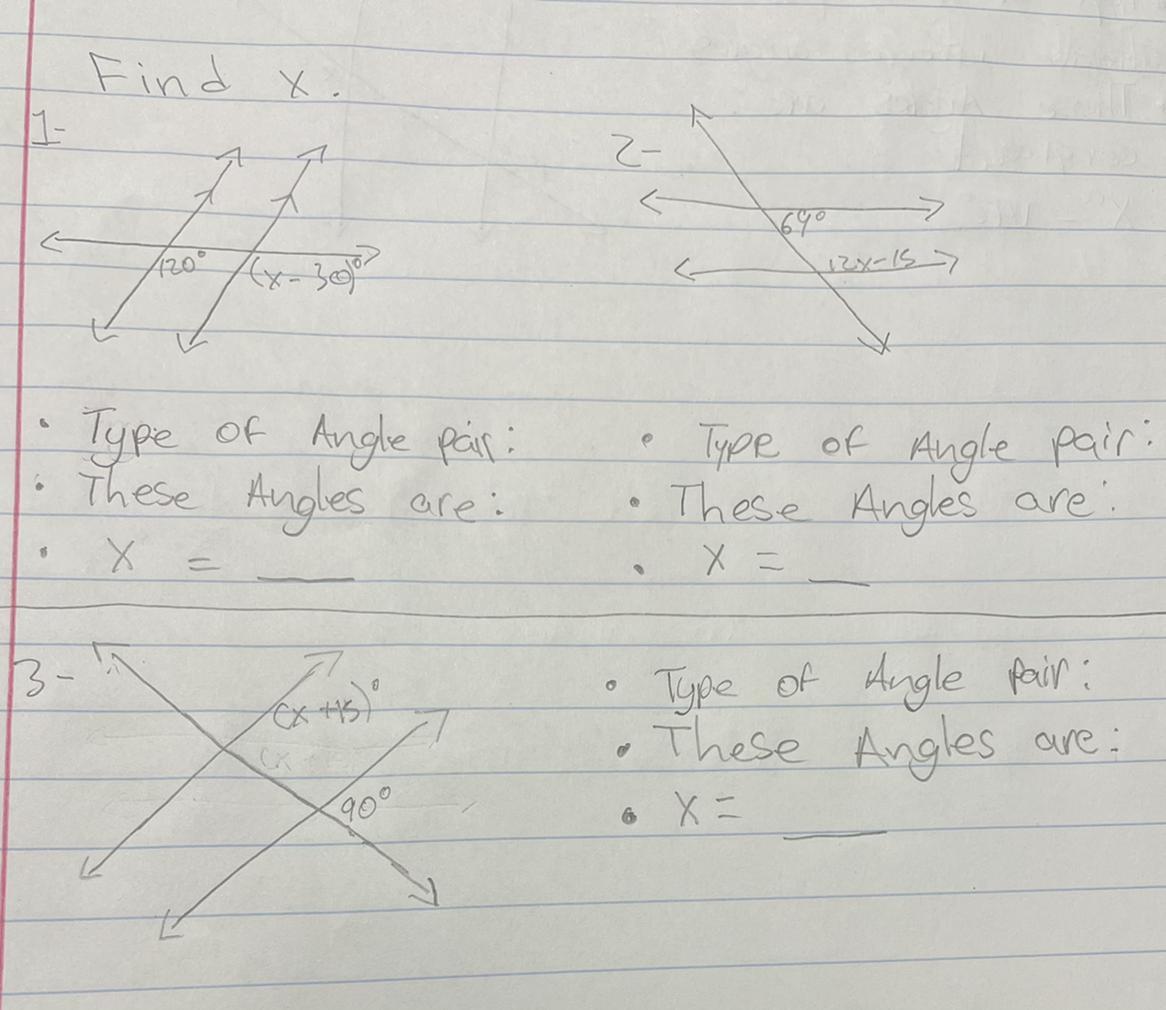 Find x.
1-
120°
(x-30)°
2-
69°
12x-15
• Type of Angle pair:
• These Angles are:
• X = ___
• Type of Angle pair:
• These Angles are:
• X = __
3-
(x+15)°
(x
90°
• Type of Angle pair:
• These Angles are:
• X = ___